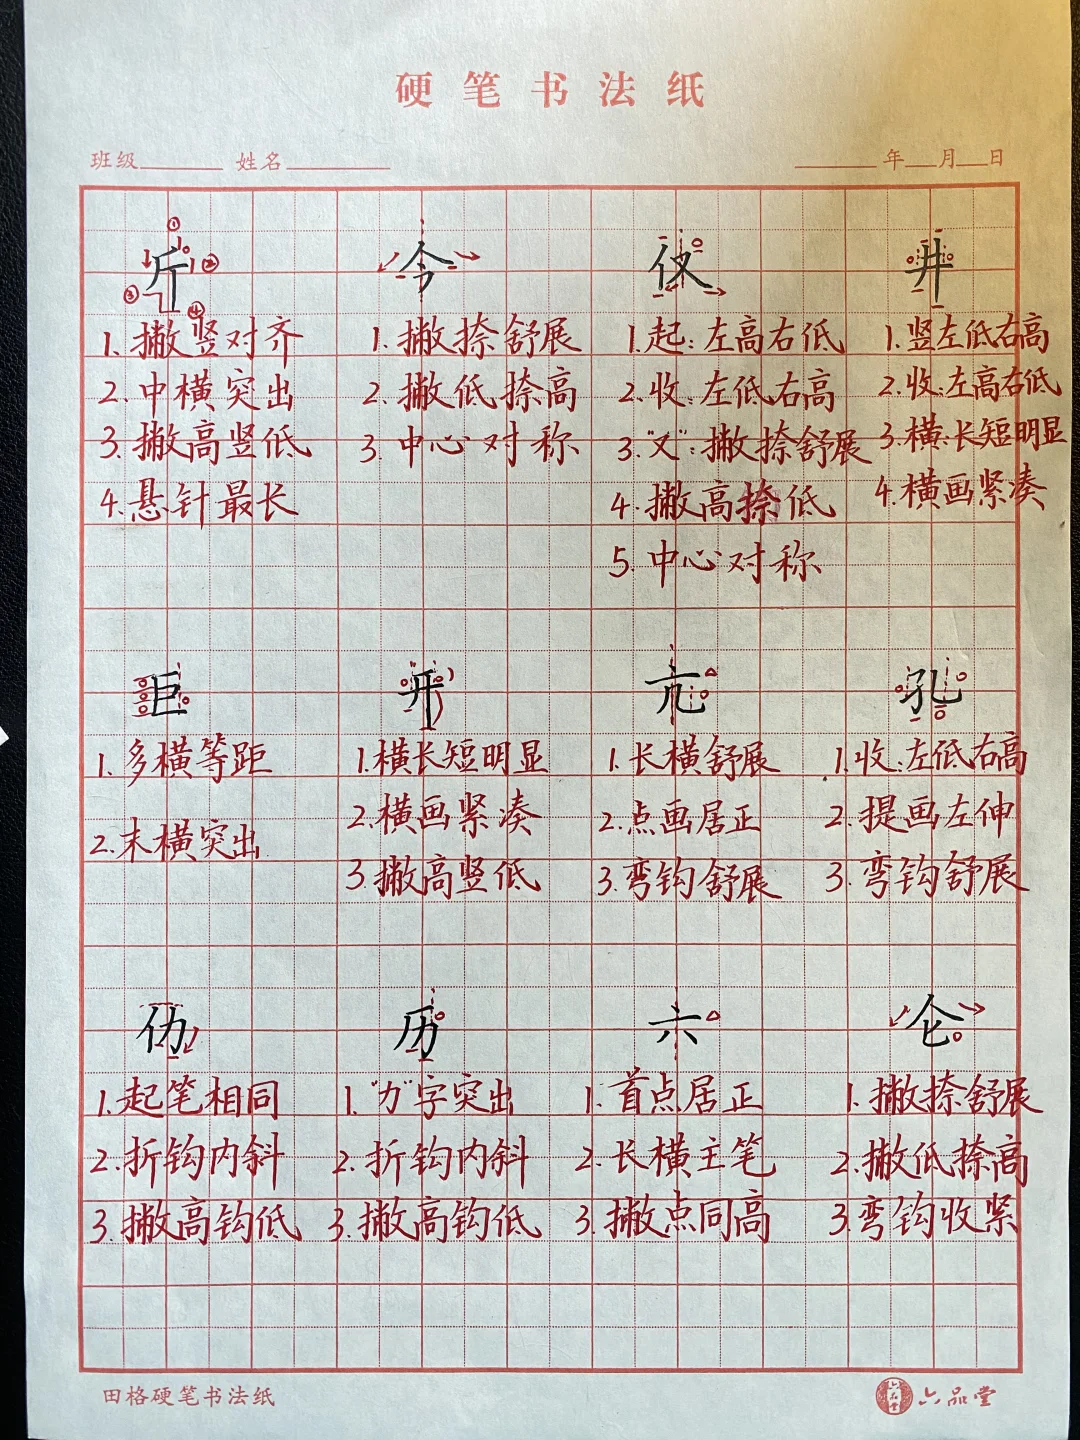 硬笔书法纸
班级 姓名 年 月 日
① ② ③ ④
斤 今 仪 井
1. 撇竖对齐 1. 撇捺舒展 1. 起：左高右低 1. 竖左低右高
2. 中横突出 2. 撇低捺高 2. 收：左低右高 2. 收：左高右低
3. 撇高竖低 3. 中心对称 3. “义”：撇捺舒展 3. 横：长短明显
4. 悬针最长 4. 撇高捺低 4. 横画紧凑
5. 中心对称
巨 开 亢 孔
1. 多横等距 1. 横长短明显 1. 长横舒展 1. 收：左低右高
2. 末横突出 2. 横画紧凑 2. 点画居正 2. 提画左伸
3. 撇高竖低 3. 弯钩舒展 3. 弯钩舒展
仂 历 六 仑
1. 起笔相同 1. “力”字突出 1. 首点居正 1. 撇捺舒展
2. 折钩内斜 2. 折钩内斜 2. 长横主笔 2. 撇低捺高
3. 撇高钩低 3. 撇高钩低 3. 撇点同高 3. 弯钩收紧
田格硬笔书法纸 六品堂 六品堂